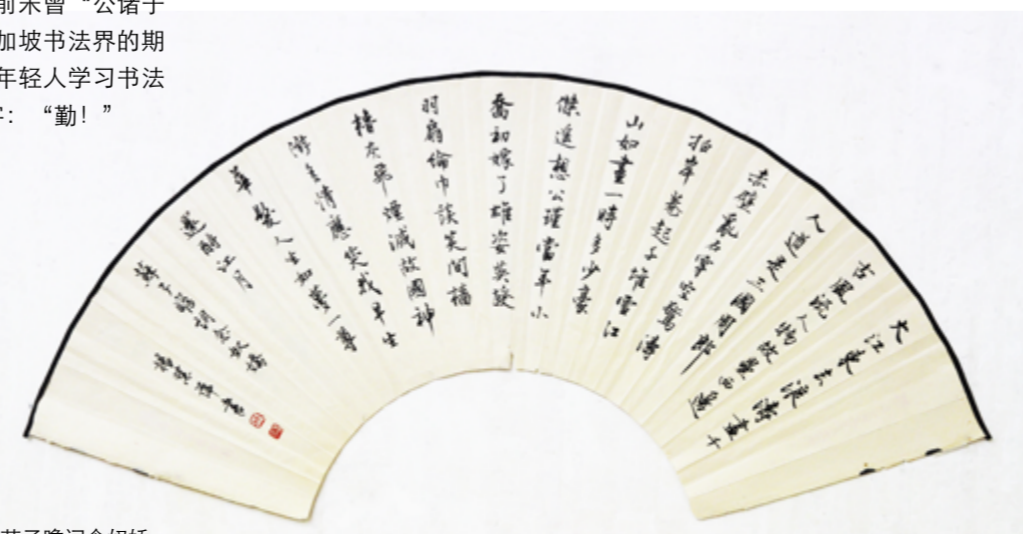 前未曾“公诸于
加坡书法界的期
年轻人学习书法
字：“勤！”
大江東去浪濤盡千
古風流人物故壘西邊
人道是三國周郎
赤壁亂石穿空驚濤
拍岸卷起千堆雪江
山如畫一時多少豪
傑遥想公瑾當年小
喬初嫁了雄姿英發
羽扇倫巾談笑間檣
櫓灰飛煙滅故國神
游多情應笑我早生
華髮人生如夢一尊
還酹江月
蘇子瞻词念奴嬌
书
苏子瞻词念奴娇